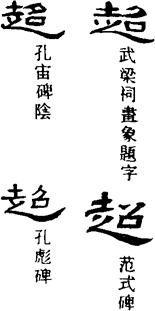 超
武梁祠畫象題字
超
孔宙碑陰
超
范式碑
超
孔彪碑